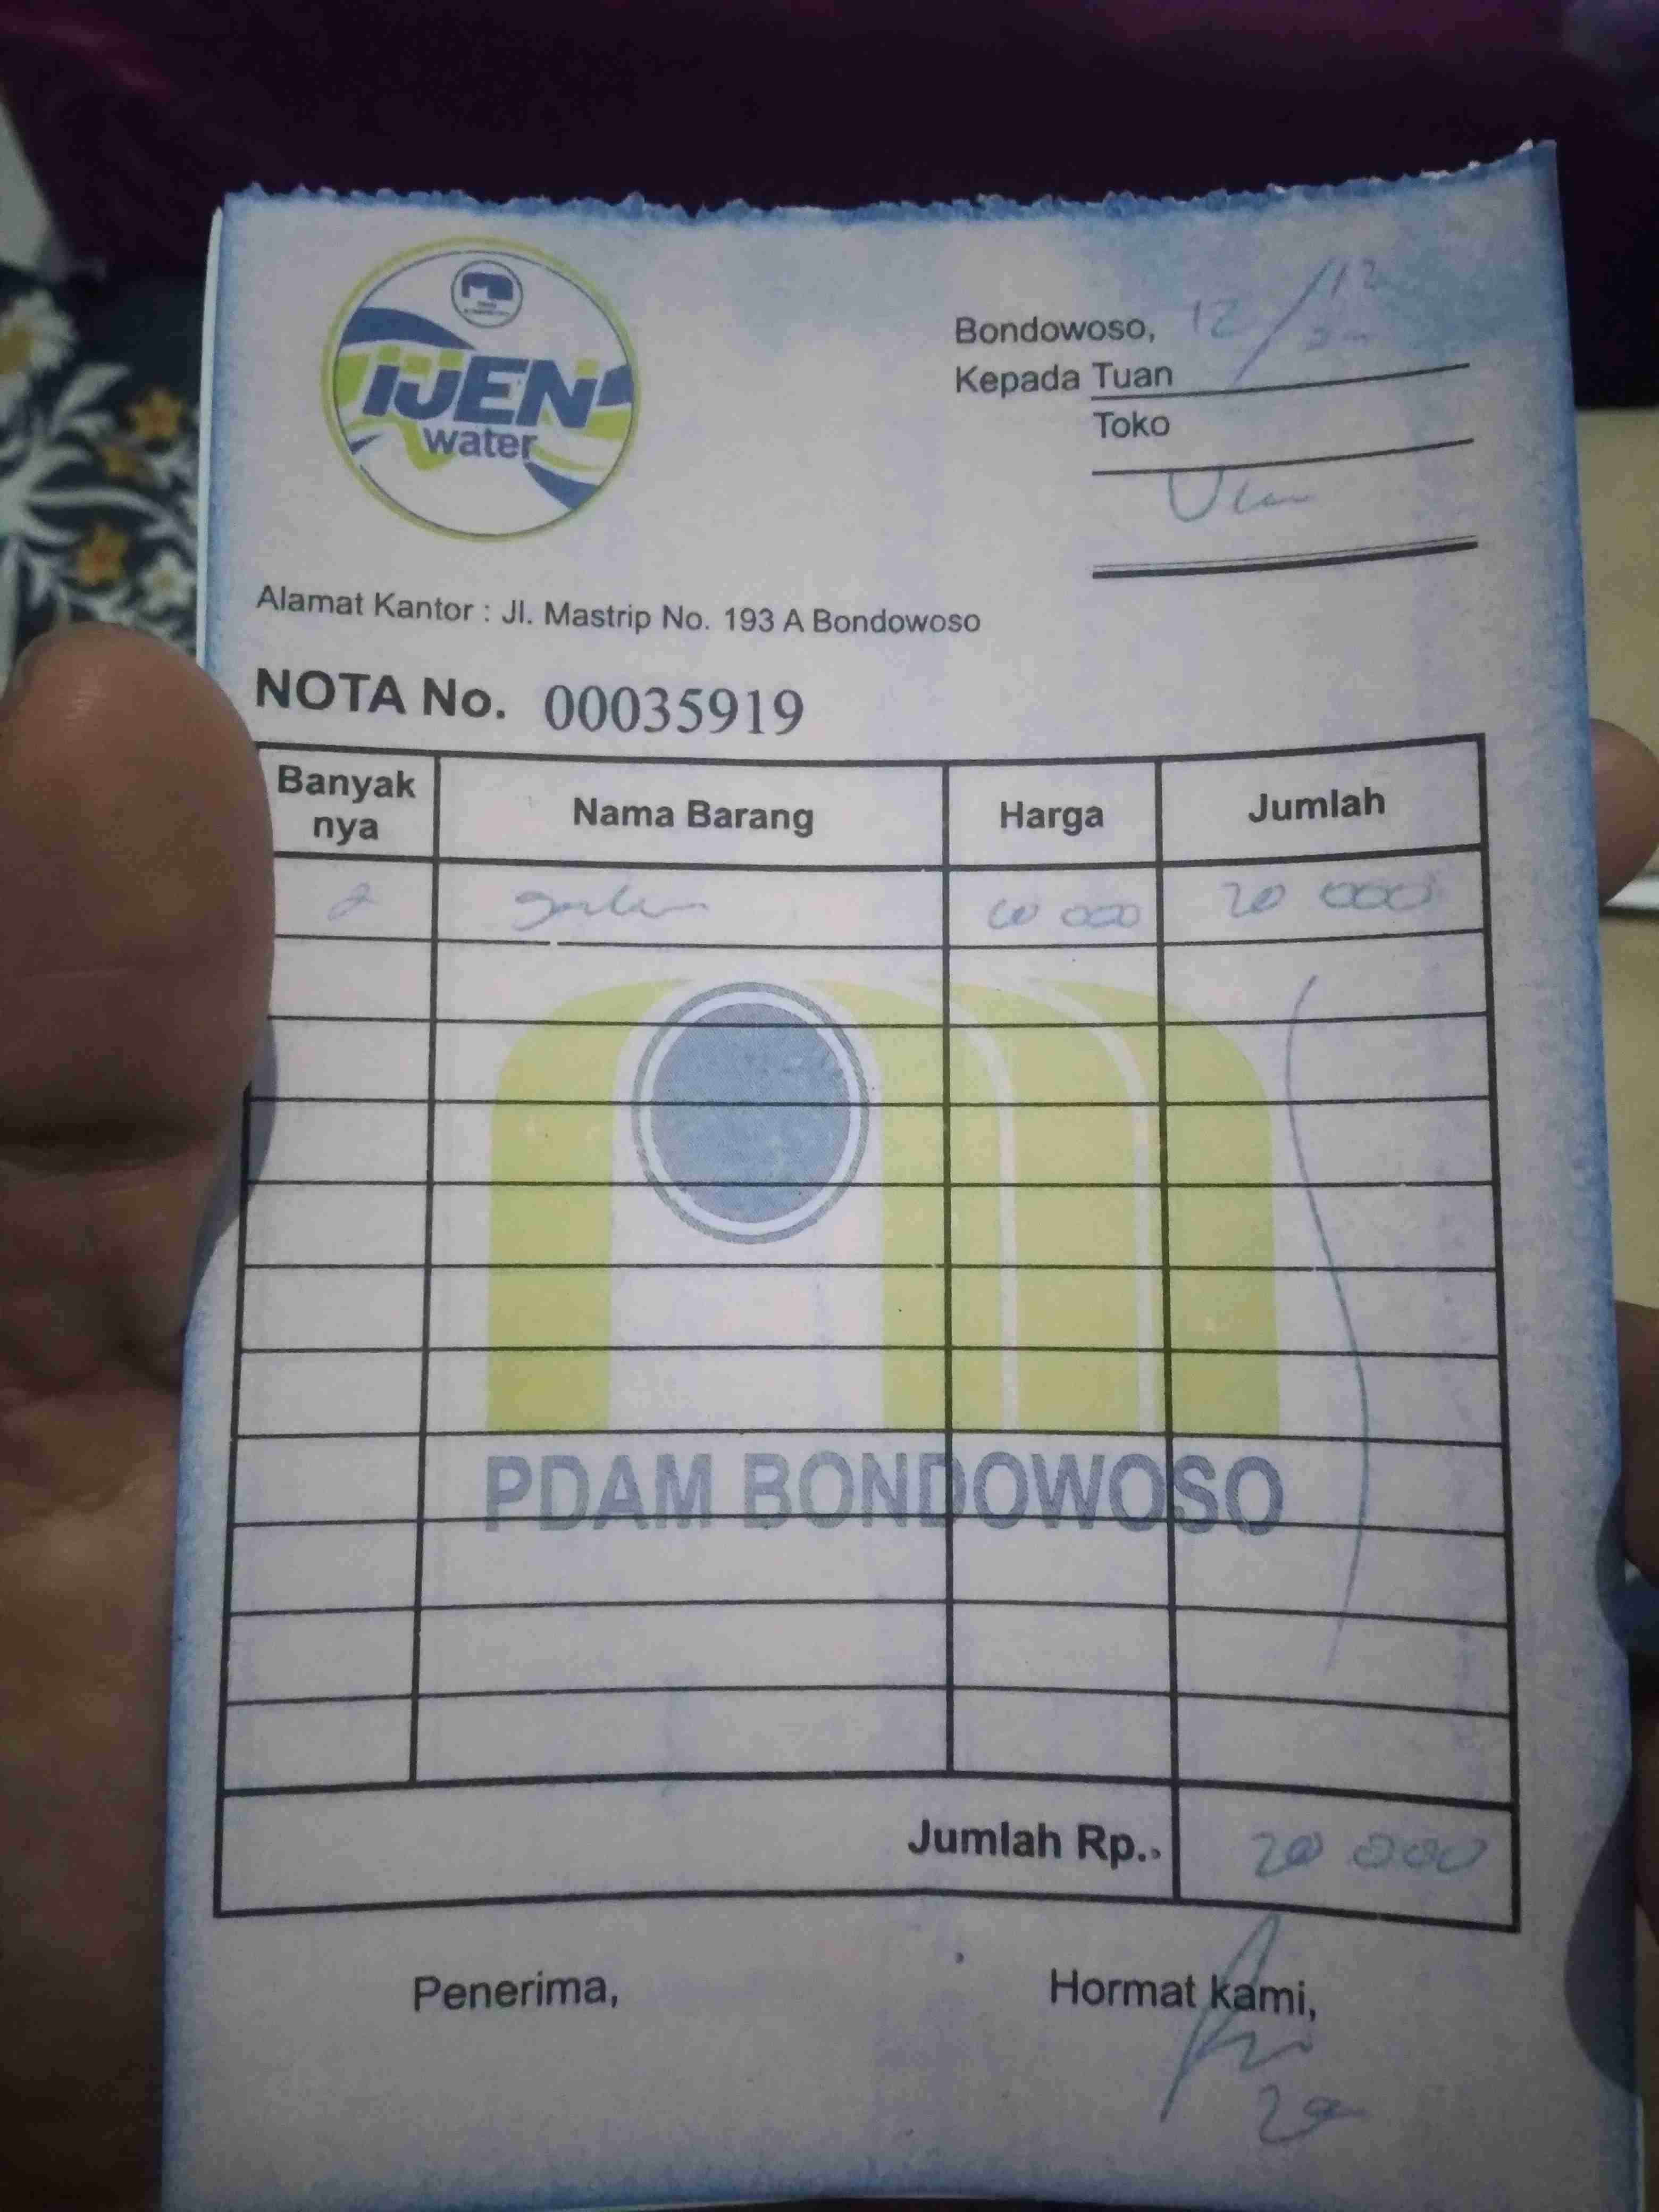 IJEN
water
Bondowoso, 12/12
Kepada Tuan
Toko
Alamat Kantor : Jl. Mastrip No. 193 A Bondowoso
NOTA No. 00035919
Banyak nya Nama Barang Harga Jumlah
2 10 000 20 000
PDAM BONDOWOSO
Jumlah Rp. 20 000
Penerima, Hormat kami,